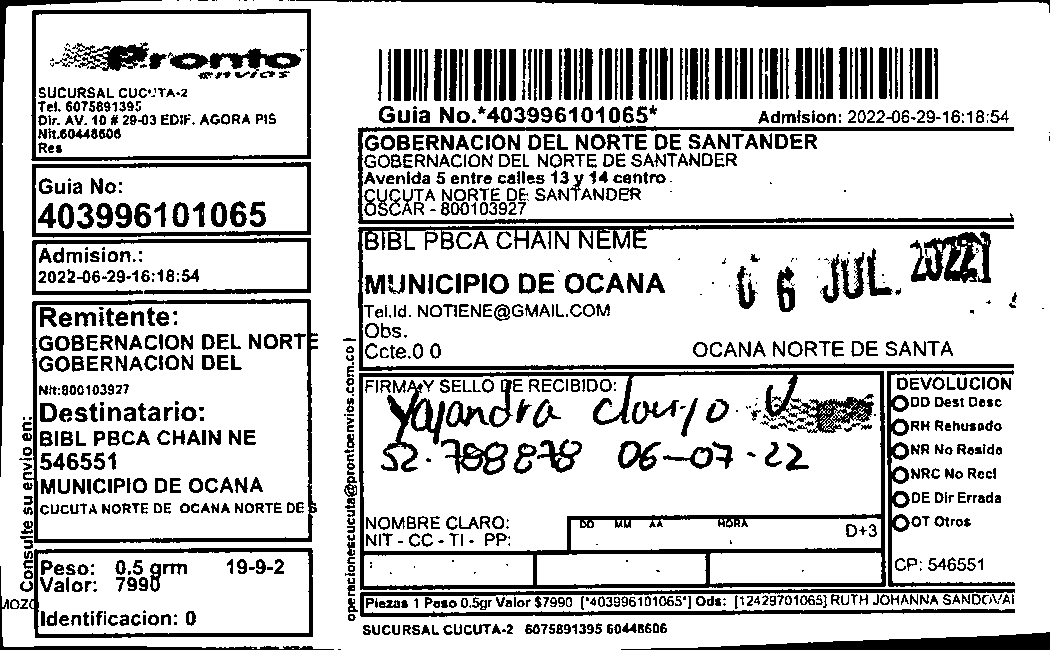 Pronto
envios
SUCURSAL CUCUTA-2
Tel. 6075891395
Dir. AV. 10 # 29-03 EDIF. AGORA PIS
Nit.60448606
Res
Guia No:
403996101065
Admision.:
2022-06-29-16:18:54
Remitente:
GOBERNACION DEL NORTE
GOBERNACION DEL
Nit:800103927
Destinatario:
BIBL PBCA CHAIN NE
546551
MUNICIPIO DE OCANA
CUCUTA NORTE DE OCANA NORTE DE S
Consulte su envio en:
Peso: 0.5 grm 19-9-2
Valor: 7990
Identificacion: 0
MOZO
operacionescucuta@prontoenvios.com.co
Guia No.*403996101065* Admision: 2022-06-29-16:18:54
GOBERNACION DEL NORTE DE SANTANDER
GOBERNACION DEL NORTE DE SANTANDER
Avenida 5 entre calles 13 y 14 centro
CUCUTA NORTE DE SANTANDER
OSCAR - 800103927
BIBL PBCA CHAIN NEME
MUNICIPIO DE OCANA
06 JUL. 2022
Tel.Id. NOTIENE@GMAIL.COM
Obs.
Ccte.0 0 OCANA NORTE DE SANTA
FIRMA Y SELLO DE RECIBIDO:
52.788878 06-07-22
NOMBRE CLARO:
NIT - CC - TI - PP:
DD MM AA HORA
D+3
DEVOLUCION
DD Dest Desc
RH Rehusado
NR No Reside
NRC No Recl
DE Dir Errada
OT Otros
CP: 546551
Piezas 1 Peso 0.5gr Valor $7990 [*403996101065*] Ods: [12429701065] RUTH JOHANNA SANDOVAL
SUCURSAL CUCUTA-2 6075891395 60448606